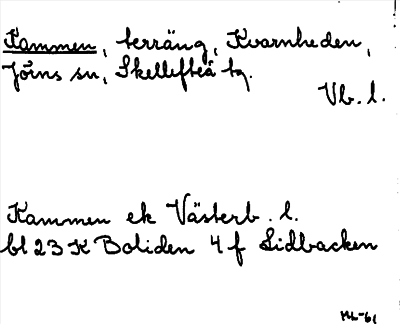 Kammen, terräng, Kvarnheden,
Jörns sn, Skellefteå tg.
Vb. l.
Kammen ek Västerb. l.
bl 23 K Boliden 4 f Lidbacken